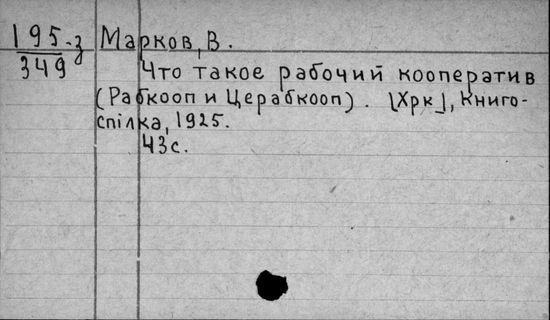 195-з Марков, В.
349
Что такое рабочий кооператив
(Рабкооп и Церабкооп). [Хрк], Книго-
спілка, 1925.
43с.